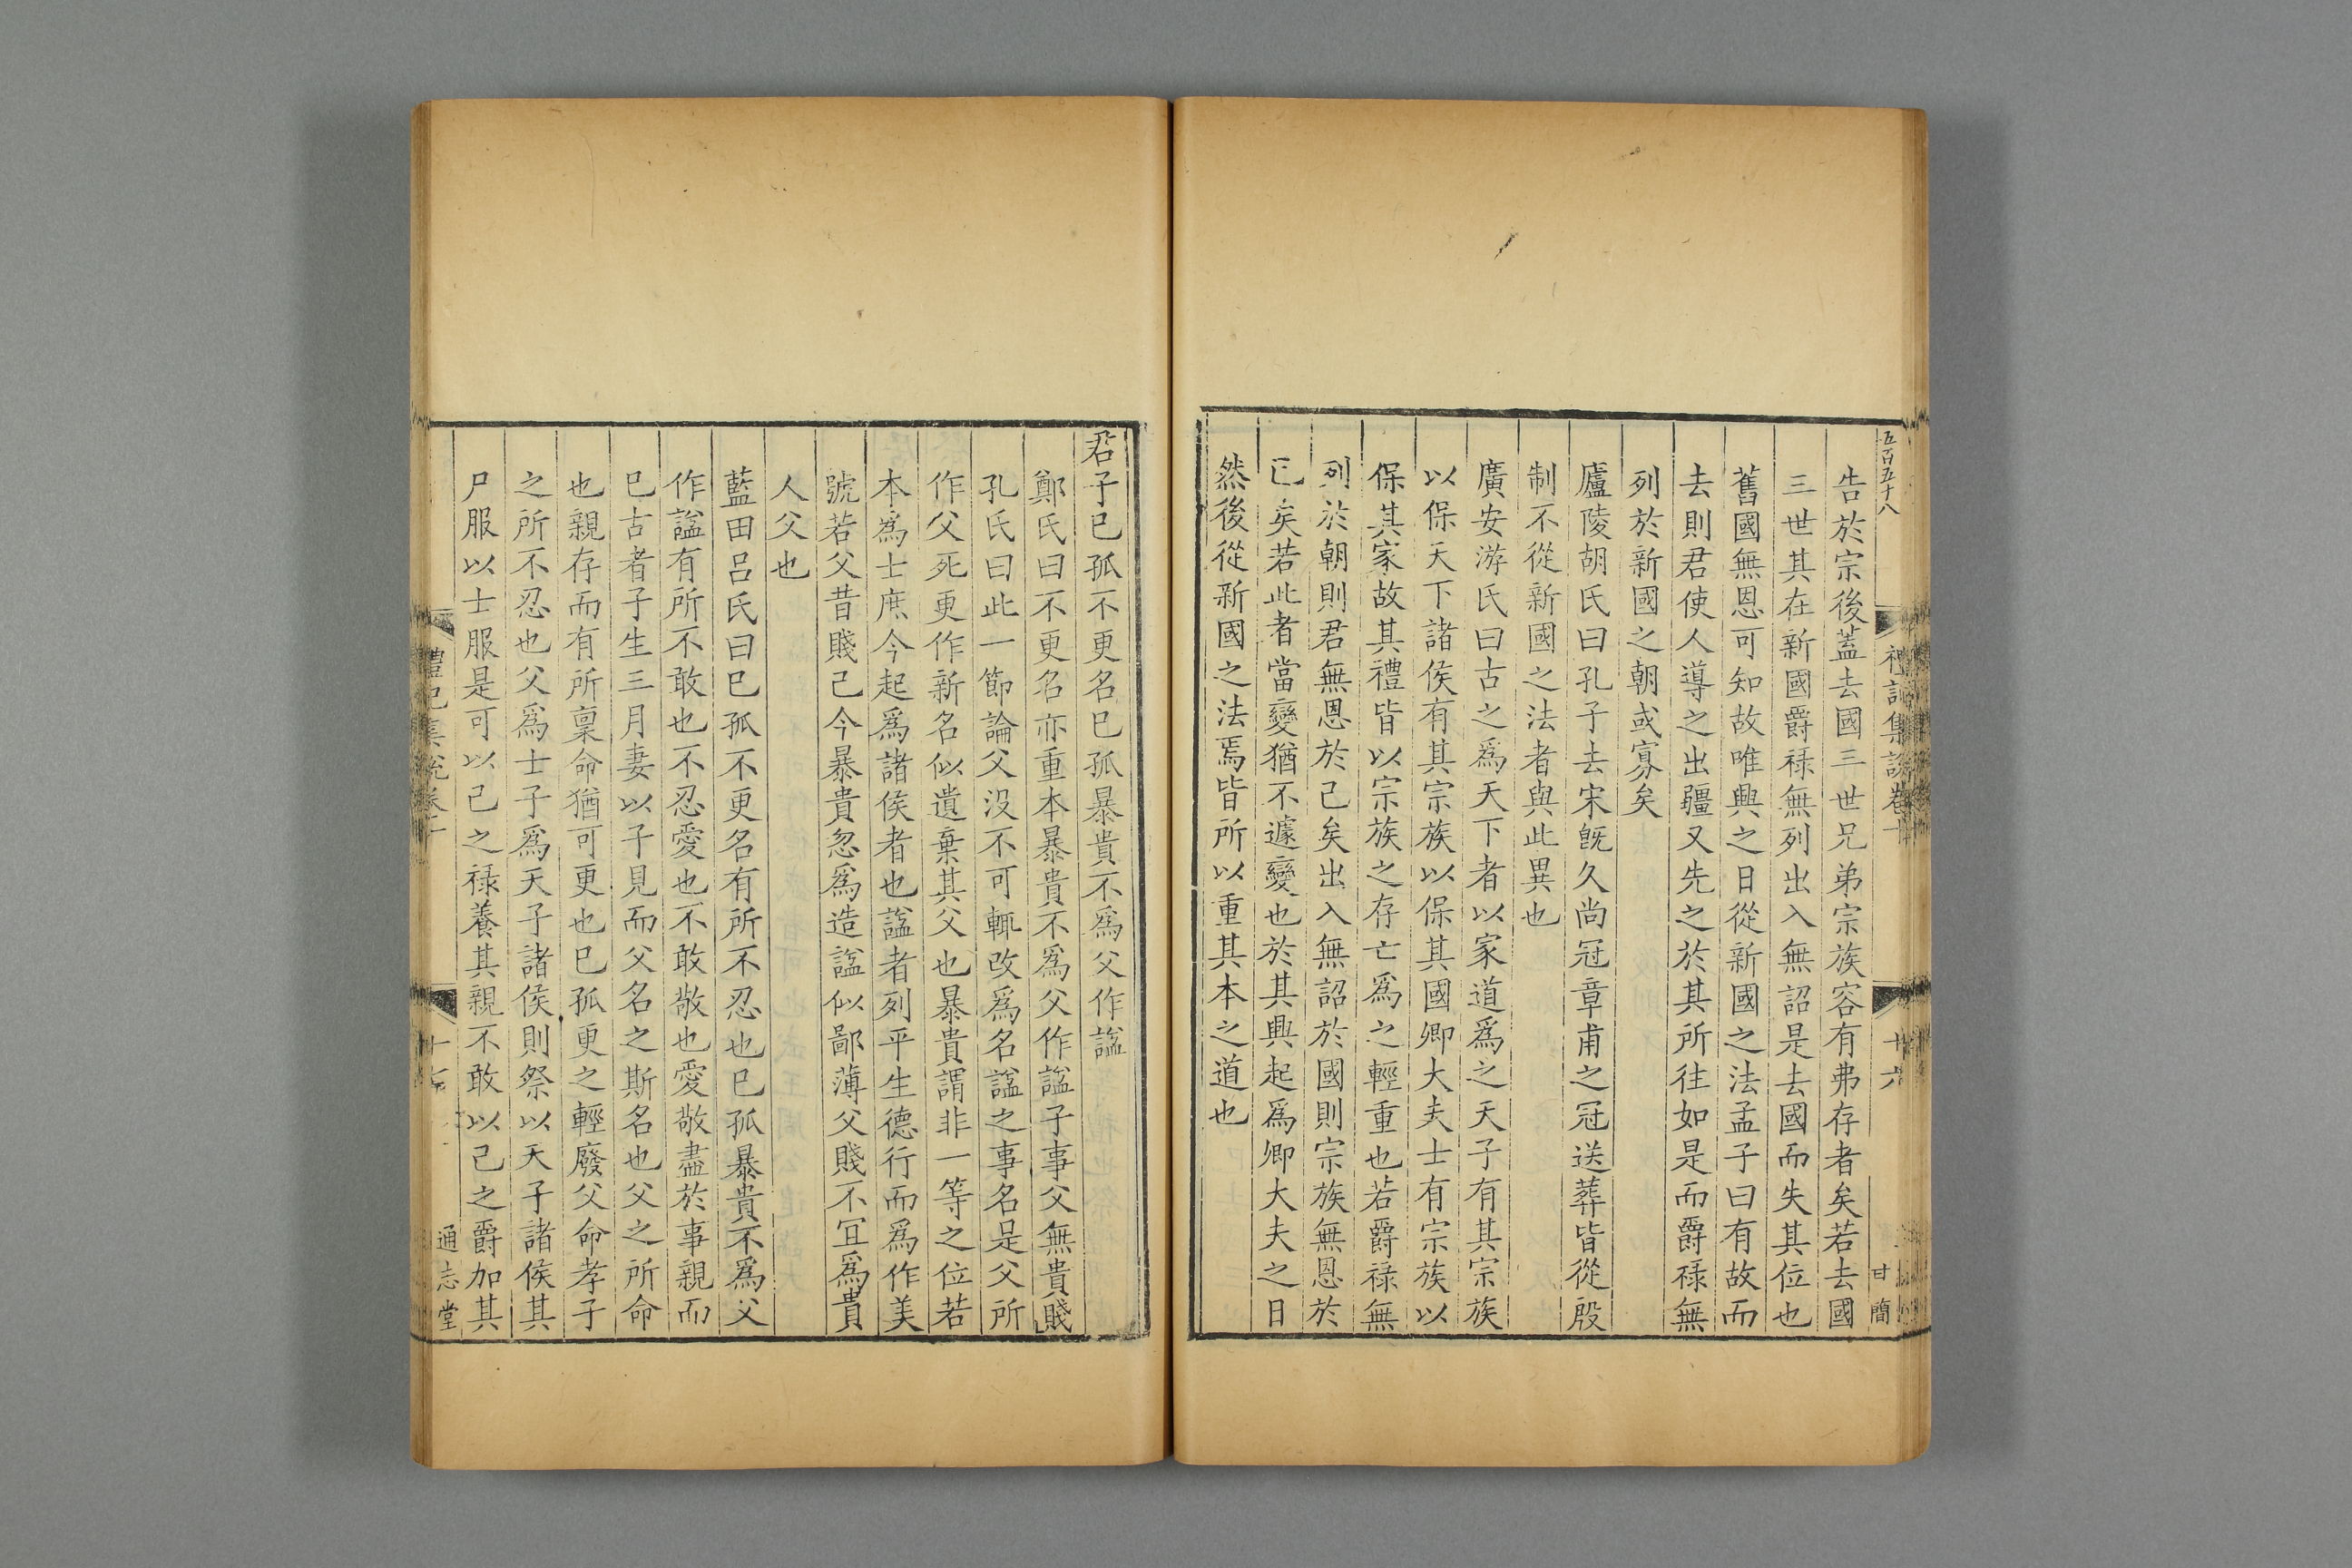 五百五十八
禮記集說卷十
十六
甘簡
告於宗後蓋去國三世兄弟宗族容有弗存者矣若去國
三世其在新國爵祿無列出入無詔是去國而失其位也
舊國無恩可知故唯興之日從新國之法孟子曰有故而
去則君使人導之出疆又先之於其所往如是而爵祿無
列於新國之朝或寡矣
廬陵胡氏曰孔子去宋旣久尚冠章甫之冠送葬皆從殷
制不從新國之法者與此異也
廣安游氏曰古之爲天下者以家道爲之天子有其宗族
以保天下諸侯有其宗族以保其國卿大夫士有宗族以
保其家故其禮皆以宗族之存亡爲之輕重也若爵祿無
列於朝則君無恩於己矣出入無詔於國則宗族無恩於
已矣若此者當變猶不遽變也於其興起爲卿大夫之日
然後從新國之法焉皆所以重其本之道也
君子已孤不更名已孤暴貴不爲父作諡
鄭氏曰不更名亦重本暴貴不爲父作諡子事父無貴賤
孔氏曰此一節論父没不可輒改爲名諡之事名是父所
作父死更作新名似遺棄其父也暴貴謂非一等之位若
本爲士庶今起爲諸侯者也諡者列平生德行而爲作美
號若父昔賤己今暴貴忽爲造諡似鄙薄父賤不宜爲貴
人父也
藍田呂氏曰已孤不更名有所不忍也已孤暴貴不爲父
作諡有所不敢也不忍愛也不敢敬也愛敬盡於事親而
已古者子生三月妻以子見而父名之斯名也父之所命
也親存而有所稟命猶可更也已孤更之輕廢父命孝子
之所不忍也父爲士子爲天子諸侯則祭以天子諸侯其
尸服以士服是可以己之祿養其親不敢以己之爵加其
禮記集說卷十
十七
通志堂